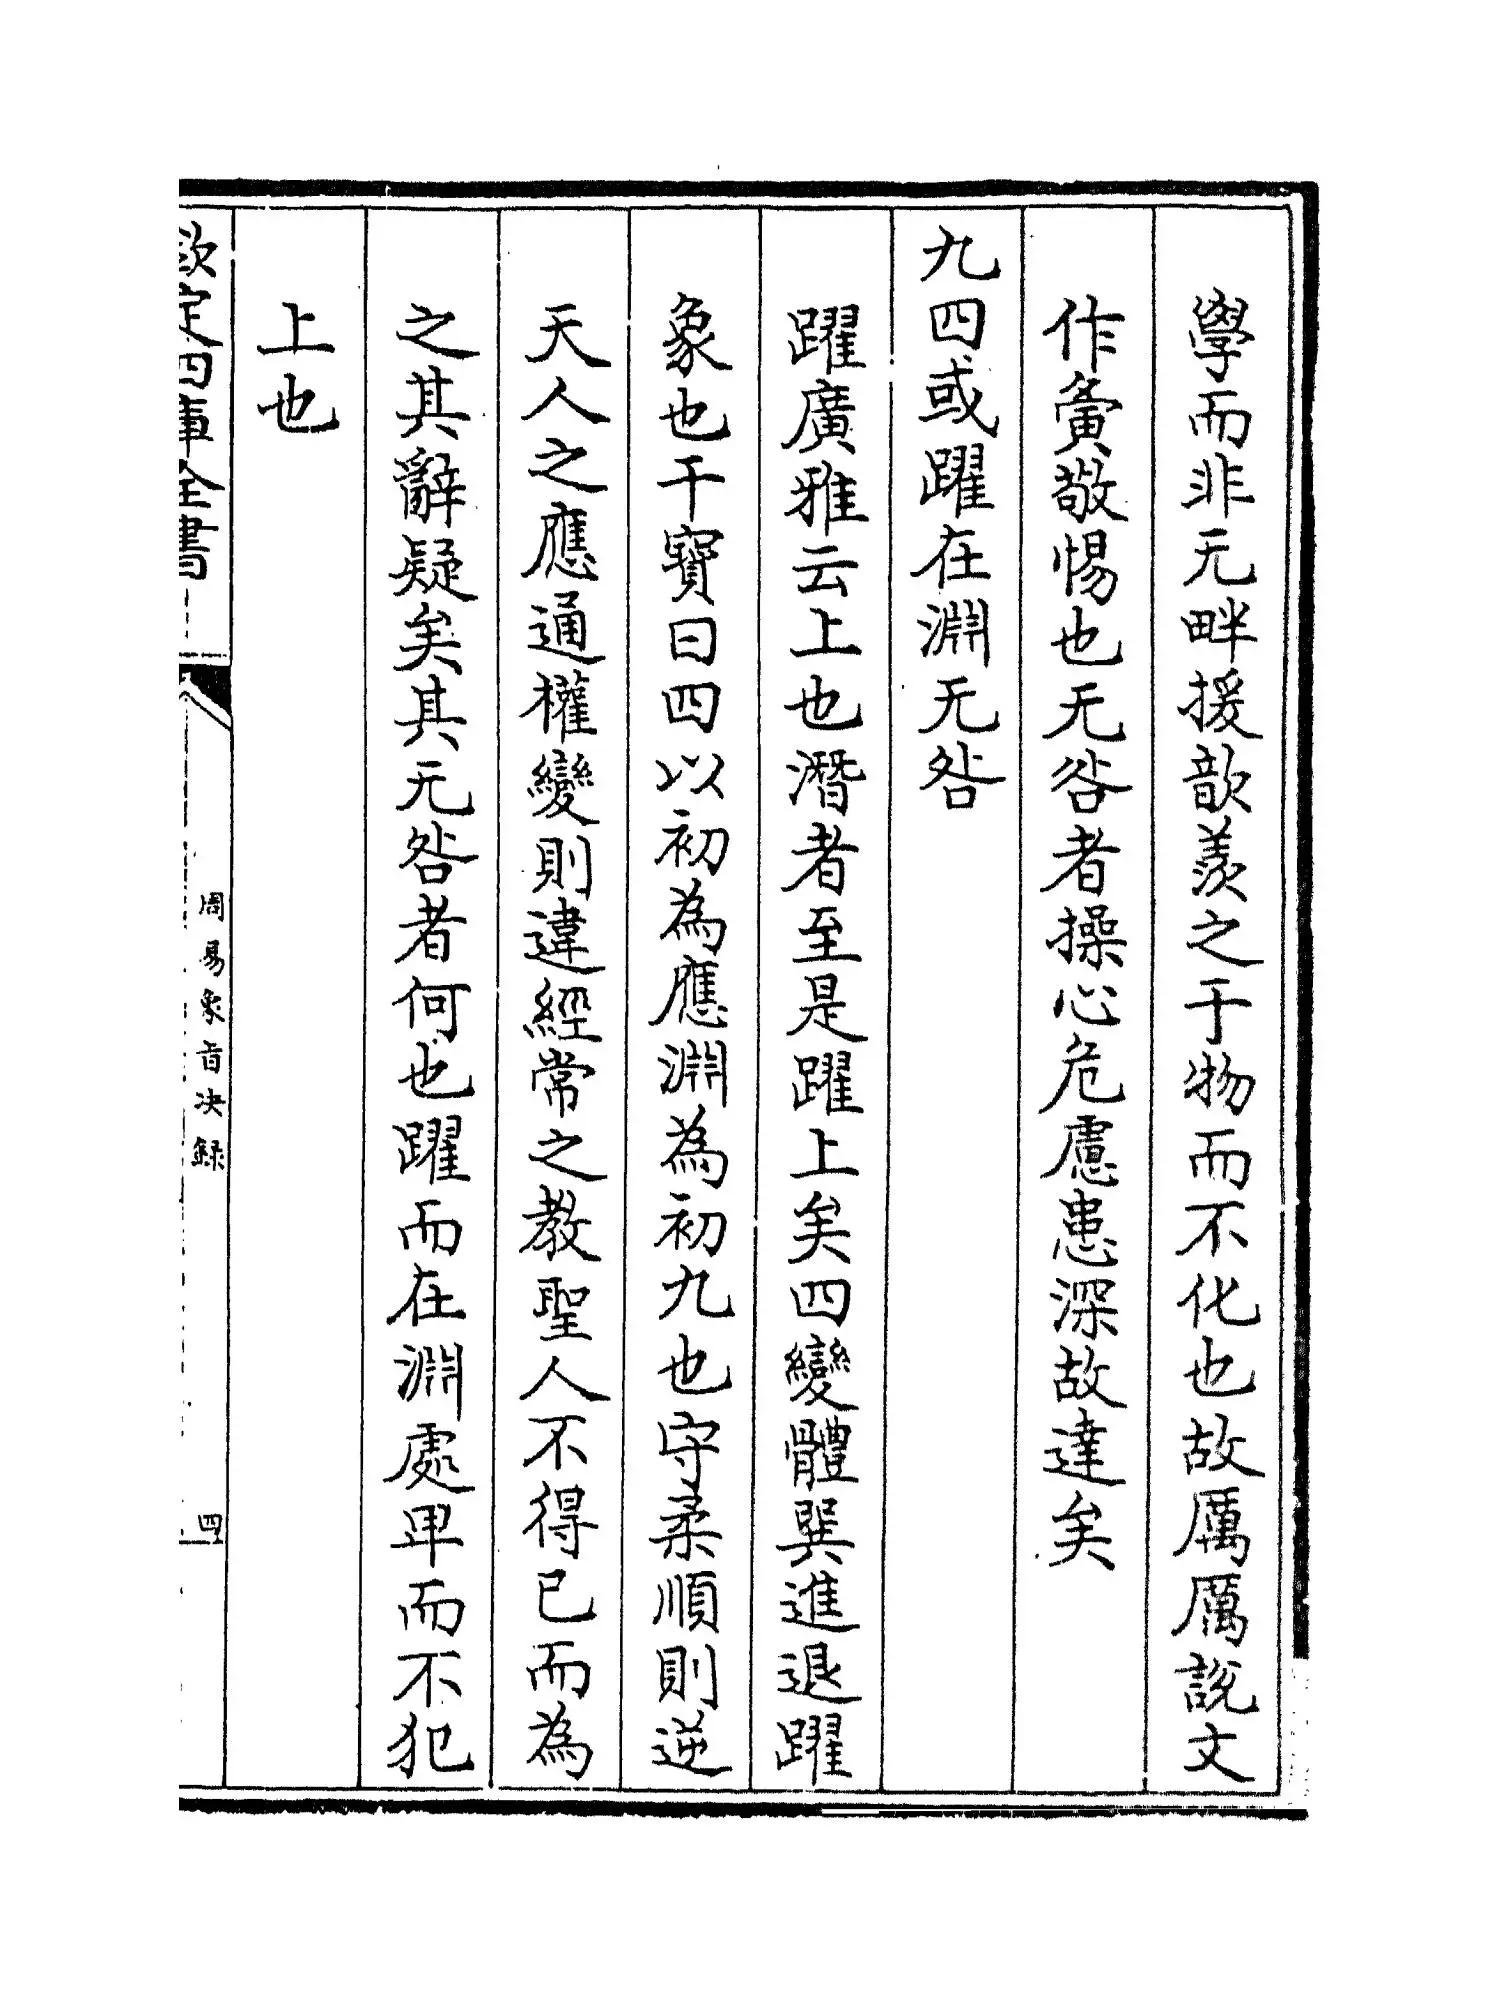 學而非无畔援歆羨之于物而不化也故厲厲説文
作夤敬惕也无咎者操心危慮患深故達矣
九四或躍在淵无咎
躍廣雅云上也潛者至是躍上矣四變體巽進退躍
象也干寶曰四以初為應淵為初九也守柔順則逆
天人之應通權變則違經常之教聖人不得已而為
之其辭疑矣其无咎者何也躍而在淵處卑而不犯
上也
欽定四庫全書
周易象旨決録
四